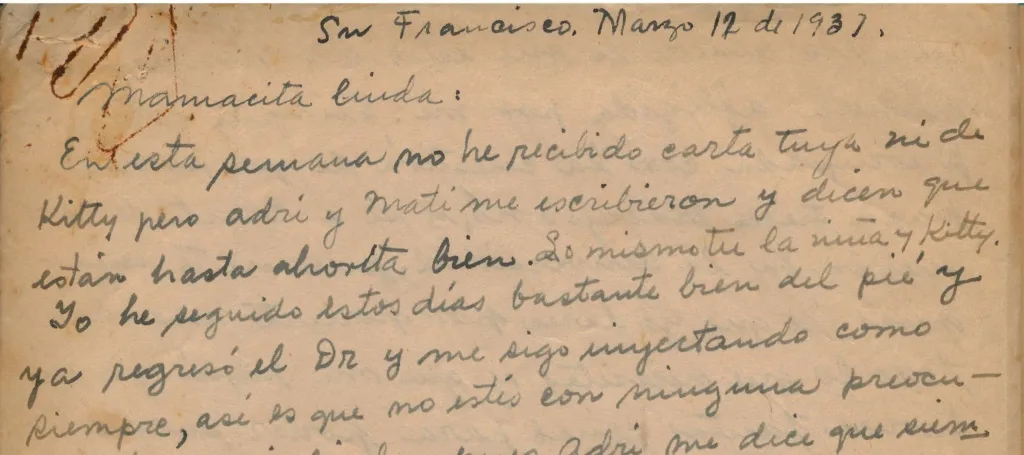 Sn Francisco. Marzo 12 de 1937.
Mamacita linda:
En esta semana no he recibido carta tuya ni de
Kitty pero adri y Mati me escribieron y dicen que
están hasta ahorita bien. Lo mismo tu la niña y Kitty.
Yo he seguido estos días bastante bien del pié y
ya regresó el Dr y me sigo injectando como
siempre, asi es que no estés con ninguna preocu-
Adri me dice que siem